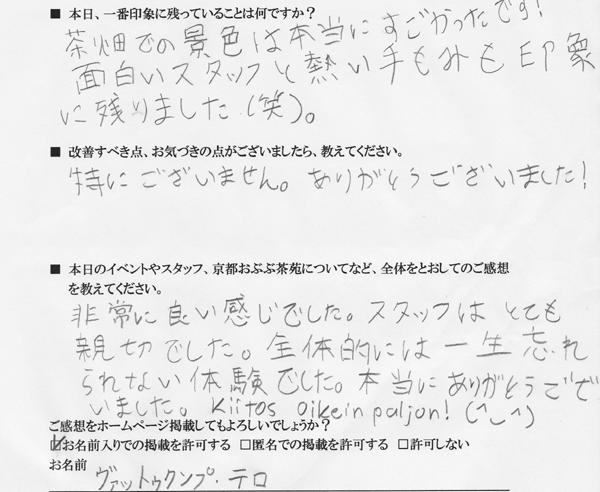 ■ 本日、一番印象に残っていることは何ですか？
茶畑での景色は本当にすごかったです！
面白いスタッフと熱い手もみも印象
に残りました（笑）。
■ 改善すべき点、お気づきの点がございましたら、教えてください。
特にございません。ありがとうございました！
■ 本日のイベントやスタッフ、京都おぶぶ茶苑についてなど、全体をとおしてのご感想
を教えてください。
非常に良い感じでした。スタッフはとても
親切でした。全体的には一生忘れ
られない体験でした。本当にありがとうござ
いました。Kiitos oikein paljon! (^_^)
ご感想をホームページ掲載してもよろしいでしょうか？
☑お名前入りでの掲載を許可する □匿名での掲載を許可する □許可しない
お名前
ヴァットゥクンプ・テロ